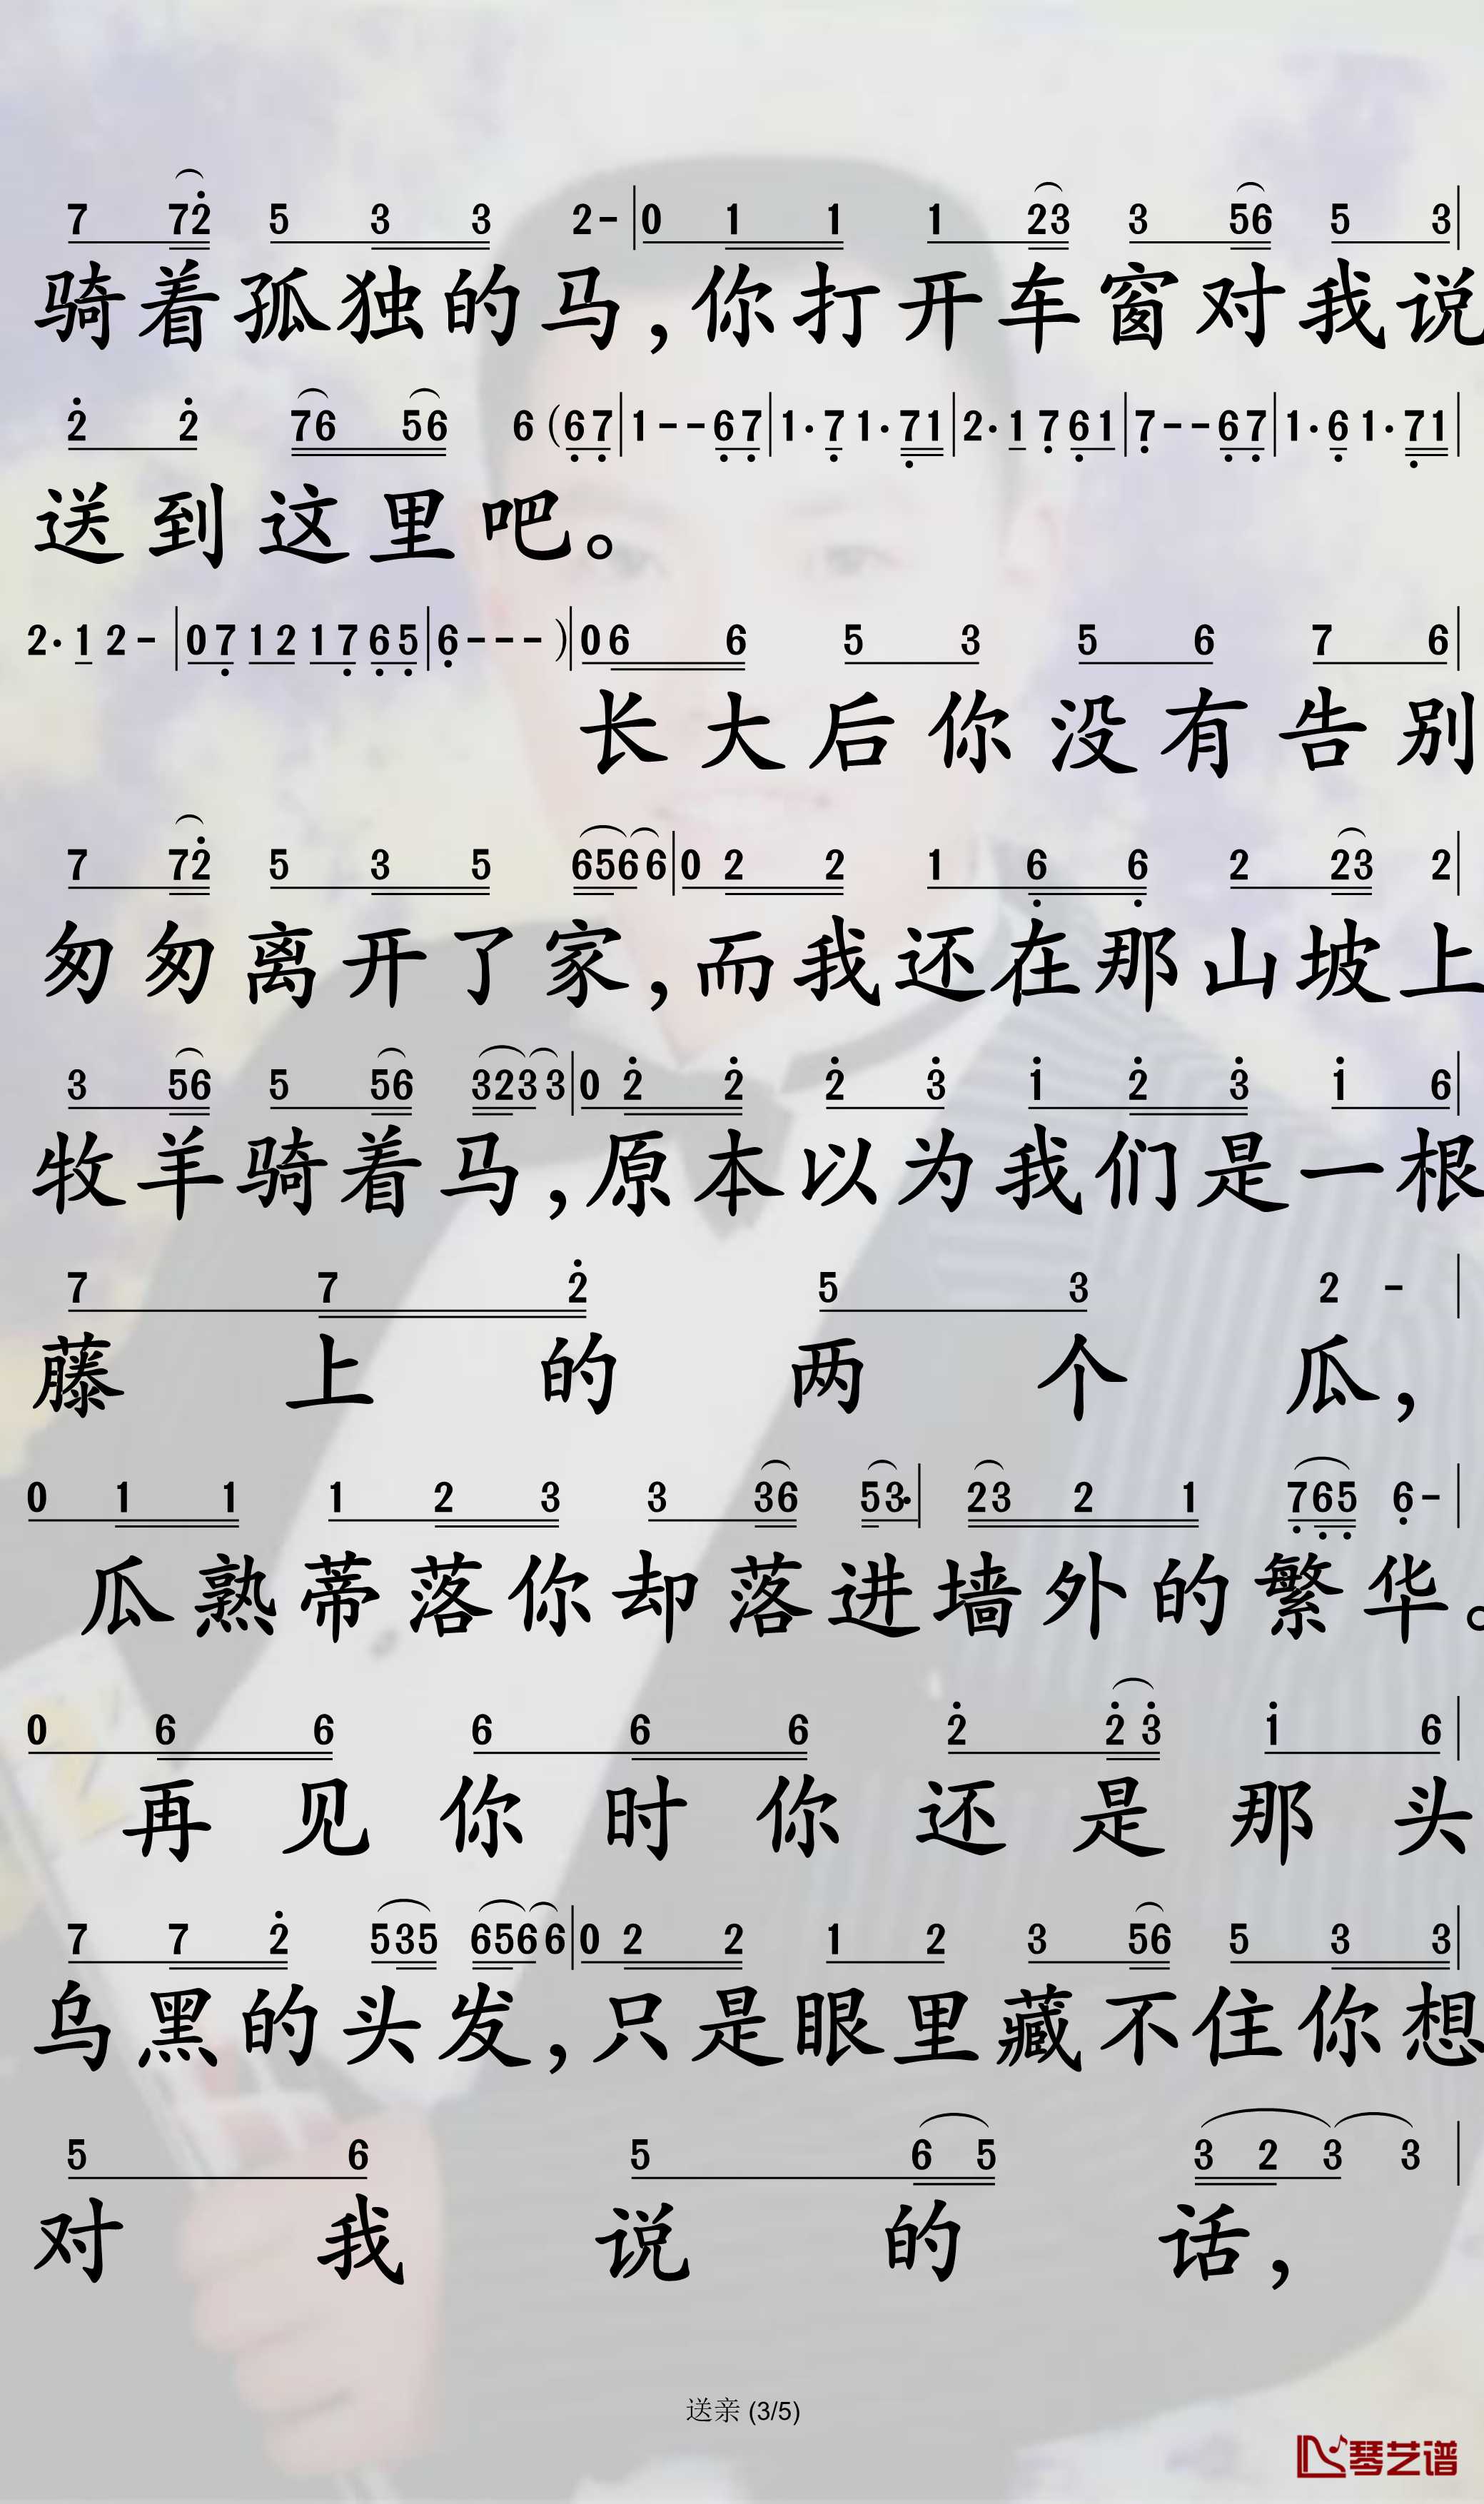 7 72̇ 5 3 3 2- | 0 1 1 1 23 3 56 5 3 |
骑着孤独的马,你打开车窗对我说
2̇ 2̇ 76 56 6 (6̣7̣ | 1--6̣7̣ | 1·7̣ 1·7̣1 | 2·1 7̣ 6̣1 | 7̣--6̣7̣ | 1·6̣ 1·7̣1 |
送到这里吧。
2·1 2- | 07̣ 12 17̣ 6̣5̣ | 6̣--- ) | 06 6 5 3 5 6 7 6 |
长大后你没有告别
7 72̇ 5 3 5 6566 | 0 2 2 1 6̣ 6̣ 2 23 2 |
匆匆离开了家,而我还在那山坡上
3 56 5 56 3233 | 0 2̇ 2̇ 2̇ 3̇ 1̇ 2̇ 3̇ 1̇ 6 |
牧羊骑着马,原本以为我们是一根
7 7 2̇ 5 3 2 - |
藤上的两个瓜,
0 1 1 1 2 3 3 36 53· | 23 2 1 7̣6̣5̣ 6̣- |
瓜熟蒂落你却落进墙外的繁华。
0 6 6 6 6 6 2̇ 2̇3̇ 1̇ 6 |
再见你时你还是那头
7 7 2̇ 535 6566 | 0 2 2 1 2 3 56 5 3 3 |
乌黑的头发,只是眼里藏不住你想
5 6 5 6 5 3 2 3 3 |
对我说的话,
送亲 (3/5)
琴艺谱